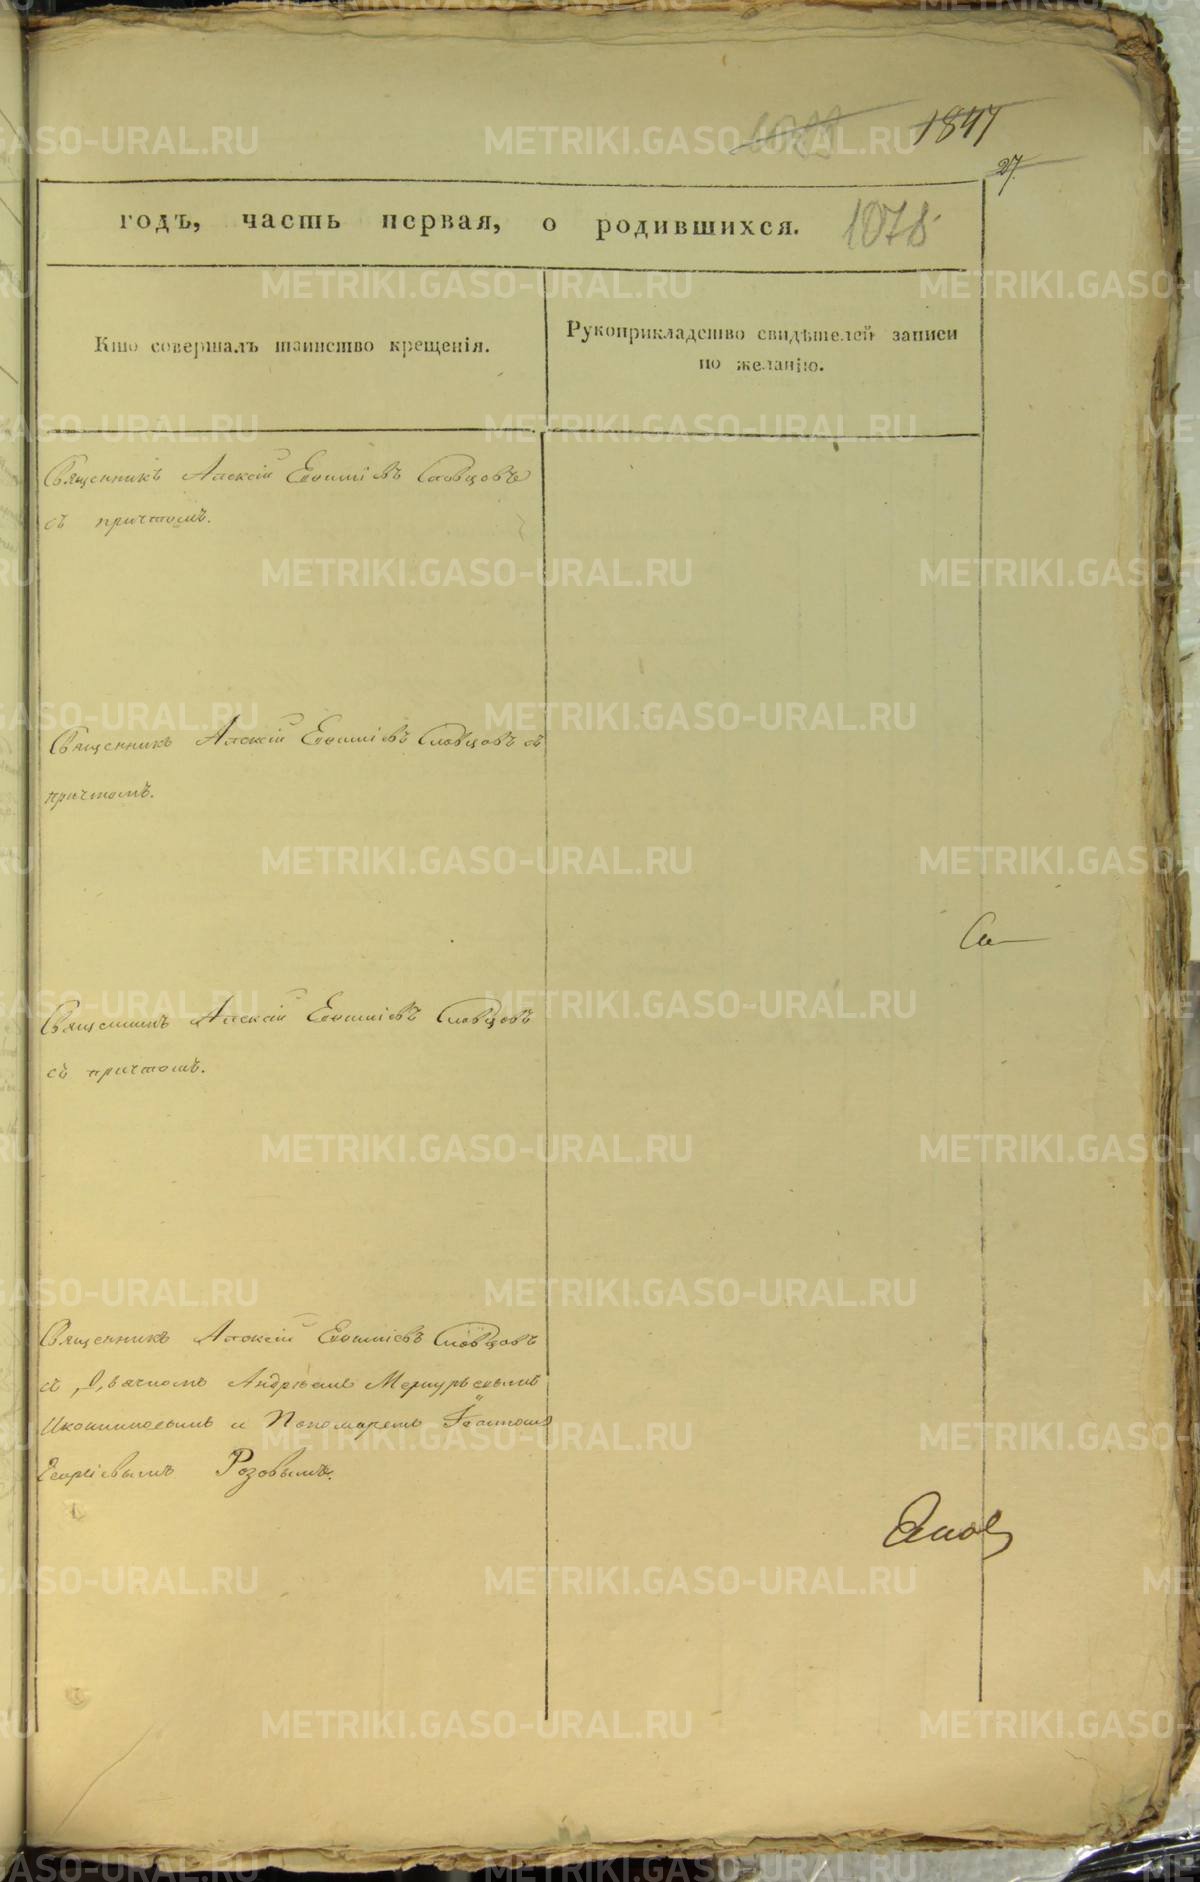 1847
27.
годъ, часть первая, о родившихся. 1078
Кто совершалъ таинство крещенія.
Рукоприкладство свидѣтелей записи
по желанію.
Священникъ Алексій Евѳиміевъ Словцовъ
съ причтомъ.
Священникъ Алексій Евѳиміевъ Словцовъ съ
причтомъ.
Священникъ Алексій Евѳиміевъ Словцовъ
съ причтомъ.
Священникъ Алексій Евѳиміевъ Словцовъ
съ Дьячкомъ Андреемъ Меркурьевымъ
Иконниковымъ и Пономаремъ Іоанномъ
Георгіевымъ Розовымъ.
METRIKI.GASO-URAL.RU